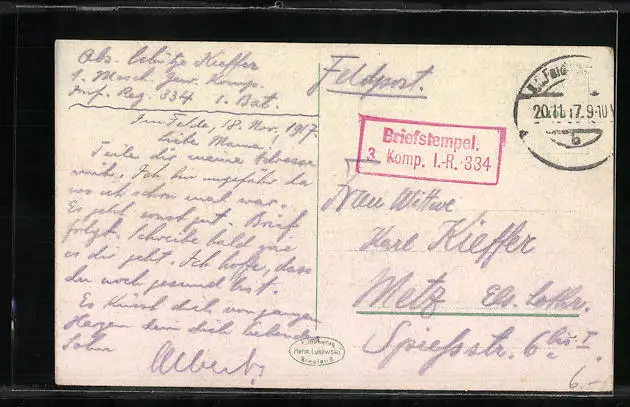 Abs. Schütze Kieffer
1. Masch. Gew. Komp.
Inf. Reg. 334 1. Bat.
Im Felde, 18. Nov. 1917.
Liebe Mama!
Teile dir meine Adresse
mit. Ich bin ungefähr da
wo ich schon mal war.
Es geht sonst gut. Brief
folgt. Schreibe bald wie
es dir geht. Ich hoffe, dass
du noch gesund bist.
Es küsst dich von ganzem
Herzen dein dich liebender
Sohn
Albert
Feldpost.
20.11.17. 9-10
b
Briefstempel.
3. Komp. I.-R. 334
Frau Wittwe
Karl Kieffer
Metz Els. Lothr.
Spießstr. 6 bis I
6.-
Herm. Lukowski